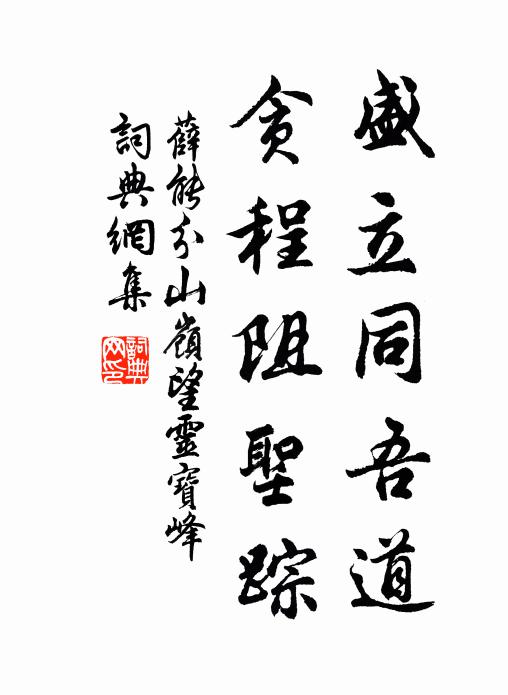 盛立同吾道
貪程阻聖踪
薛能分山嶺望靈寶峰
詞典網集
詞典網印